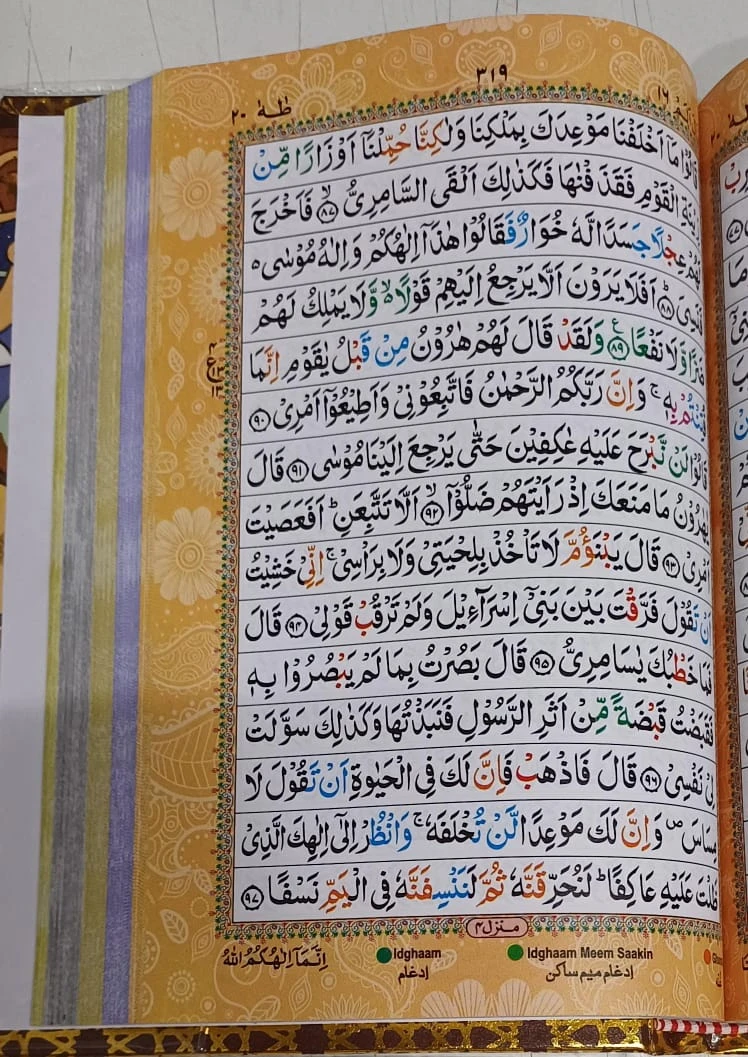 طٰهٰ ٢٠
٣١٩
١٦
قَالُوْا مَاۤ اَخْلَفْنَا مَوْعِدَكَ بِمَلْكِنَا وَلٰكِنَّا حُمِّلْنَاۤ اَوْزَارًا مِّنْ
زِيْنَةِ الْقَوْمِ فَقَذَفْنٰهَا فَكَذٰلِكَ اَلْقَى السَّامِرِيُّ ۙ﴿٨٧﴾ فَاَخْرَجَ
لَهُمْ عِجْلًا جَسَدًا لَّهٗ خُوَارٌ فَقَالُوْا هٰذَاۤ اِلٰهُكُمْ وَاِلٰهُ مُوْسٰى ٥
فَنَسِيَ ؕ﴿٨٨﴾ اَفَلَا يَرَوْنَ اَلَّا يَرْجِعُ اِلَيْهِمْ قَوْلًا ۙ۬ وَّلَا يَمْلِكُ لَهُمْ
ضَرًّا وَّلَا نَفْعًا ﴿٨٩﴾ ع وَلَقَدْ قَالَ لَهُمْ هٰرُوْنُ مِنْ قَبْلُ يٰقَوْمِ اِنَّمَا
فُتِنْتُمْ بِهٖ ۚ وَاِنَّ رَبَّكُمُ الرَّحْمٰنُ فَاتَّبِعُوْنِيْ وَاَطِيْعُوْۤا اَمْرِيْ ﴿٩٠﴾
قَالُوْا لَنْ نَّبْرَحَ عَلَيْهِ عٰكِفِيْنَ حَتّٰى يَرْجِعَ اِلَيْنَا مُوْسٰى ﴿٩١﴾ قَالَ
يٰهٰرُوْنُ مَا مَنَعَكَ اِذْ رَاَيْتَهُمْ ضَلُّوْۤا ۙ﴿٩٢﴾ اَلَّا تَتَّبِعَنِ ؕ اَفَعَصَيْتَ
اَمْرِيْ ﴿٩٣﴾ قَالَ يَبْنَؤُمَّ لَا تَاْخُذْ بِلِحْيَتِيْ وَلَا بِرَاْسِيْ ۚ اِنِّيْ خَشِيْتُ
اَنْ تَقُوْلَ فَرَّقْتَ بَيْنَ بَنِيْۤ اِسْرَآءِيْلَ وَلَمْ تَرْقُبْ قَوْلِيْ ﴿٩٤﴾ قَالَ
فَمَا خَطْبُكَ يٰسَامِرِيُّ ﴿٩٥﴾ قَالَ بَصُرْتُ بِمَا لَمْ يَبْصُرُوْا بِهٖ
فَقَبَضْتُ قَبْضَةً مِّنْ اَثَرِ الرَّسُوْلِ فَنَبَذْتُهَا وَكَذٰلِكَ سَوَّلَتْ
لِيْ نَفْسِيْ ﴿٩٦﴾ قَالَ فَاذْهَبْ فَاِنَّ لَكَ فِي الْحَيٰوةِ اَنْ تَقُوْلَ لَا
مِسَاسَ ۪ وَاِنَّ لَكَ مَوْعِدًا لَّنْ تُخْلَفَهٗ ۚ وَانْظُرْ اِلٰۤى اِلٰهِكَ الَّذِيْ
ظَلْتَ عَلَيْهِ عَاكِفًا ؕ لَنُحَرِّقَنَّهٗ ثُمَّ لَنَنْسِفَنَّهٗ فِي الْيَمِّ نَسْفًا ﴿٩٧﴾
منزل ٤
اِنَّمَاۤ اِلٰهُكُمُ اللّٰهُ
Idghaam
ادغام
Idghaam Meem Saakin
ادغام میم ساکن